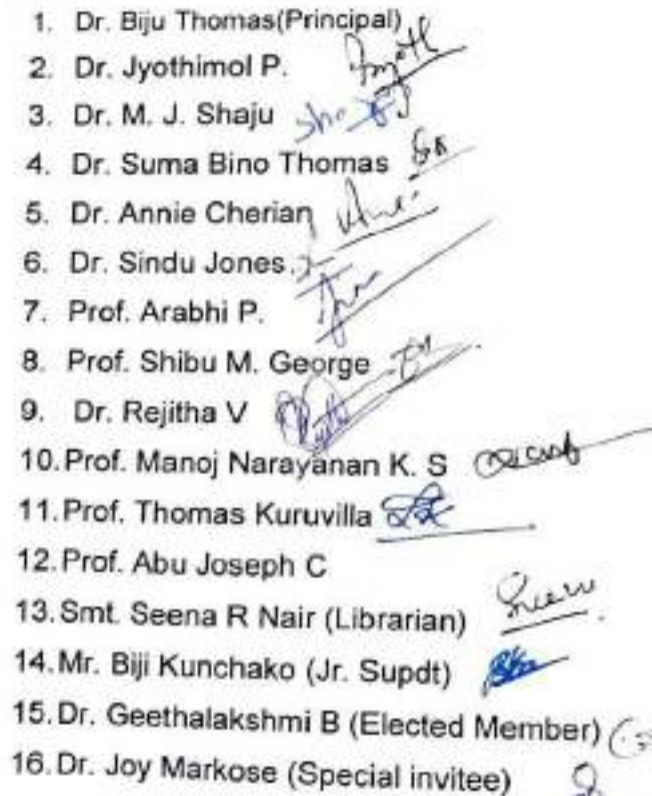 1. Dr. Biju Thomas(Principal)
2. Dr. Jyothimol P. Jyoth
3. Dr. M. J. Shaju
4. Dr. Suma Bino Thomas
5. Dr. Annie Cherian
6. Dr. Sindu Jones.
7. Prof. Arabhi P.
8. Prof. Shibu M. George
9. Dr. Rejitha V
10. Prof. Manoj Narayanan K. S
11. Prof. Thomas Kuruvilla
12. Prof. Abu Joseph C
13. Smt. Seena R Nair (Librarian)
14. Mr. Biji Kunchako (Jr. Supdt)
15. Dr. Geethalakshmi B (Elected Member)
16. Dr. Joy Markose (Special invitee)